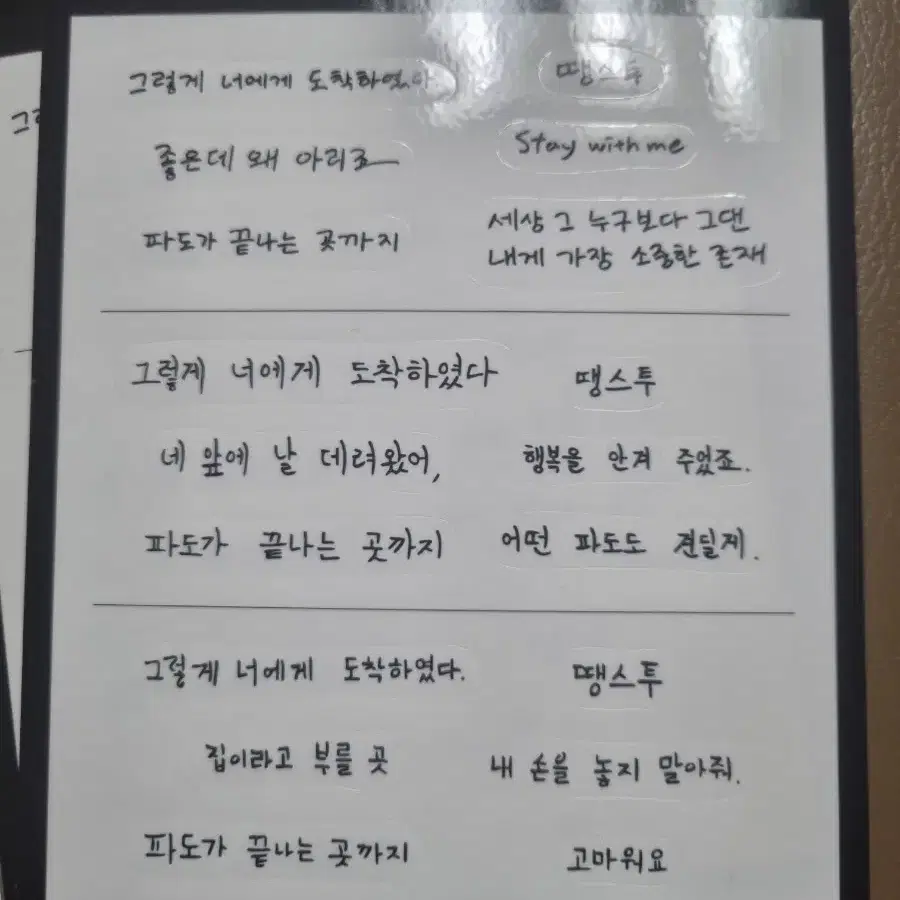 그렇게 너에게 도착하였다.
땡스투
좋은데 왜 아리로
Stay with me
파도가 끝나는 곳까지
세상 그 누구보다 그댄
내게 가장 소중한 존재
그렇게 너에게 도착하였다
땡스투
네 앞에 날 데려왔어,
행복을 안겨 주었죠.
파도가 끝나는 곳까지
어떤 파도도 견딜게.
그렇게 너에게 도착하였다.
땡스투
집이라고 부를 곳
내 손을 놓지 말아줘.
파도가 끝나는 곳까지
고마워요